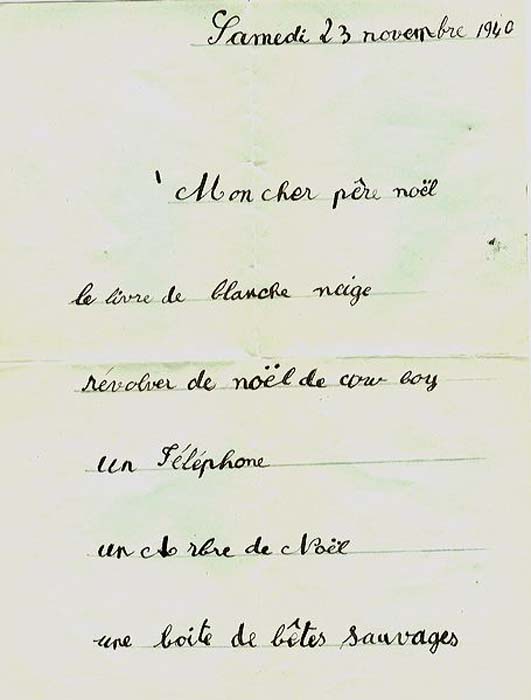 Samedi 23 novembre 1940
Mon cher père noël
le livre de blanche neige
révolver de noël de cow boy
un Téléphone
un Arbre de Noël
une boite de bêtes sauvages